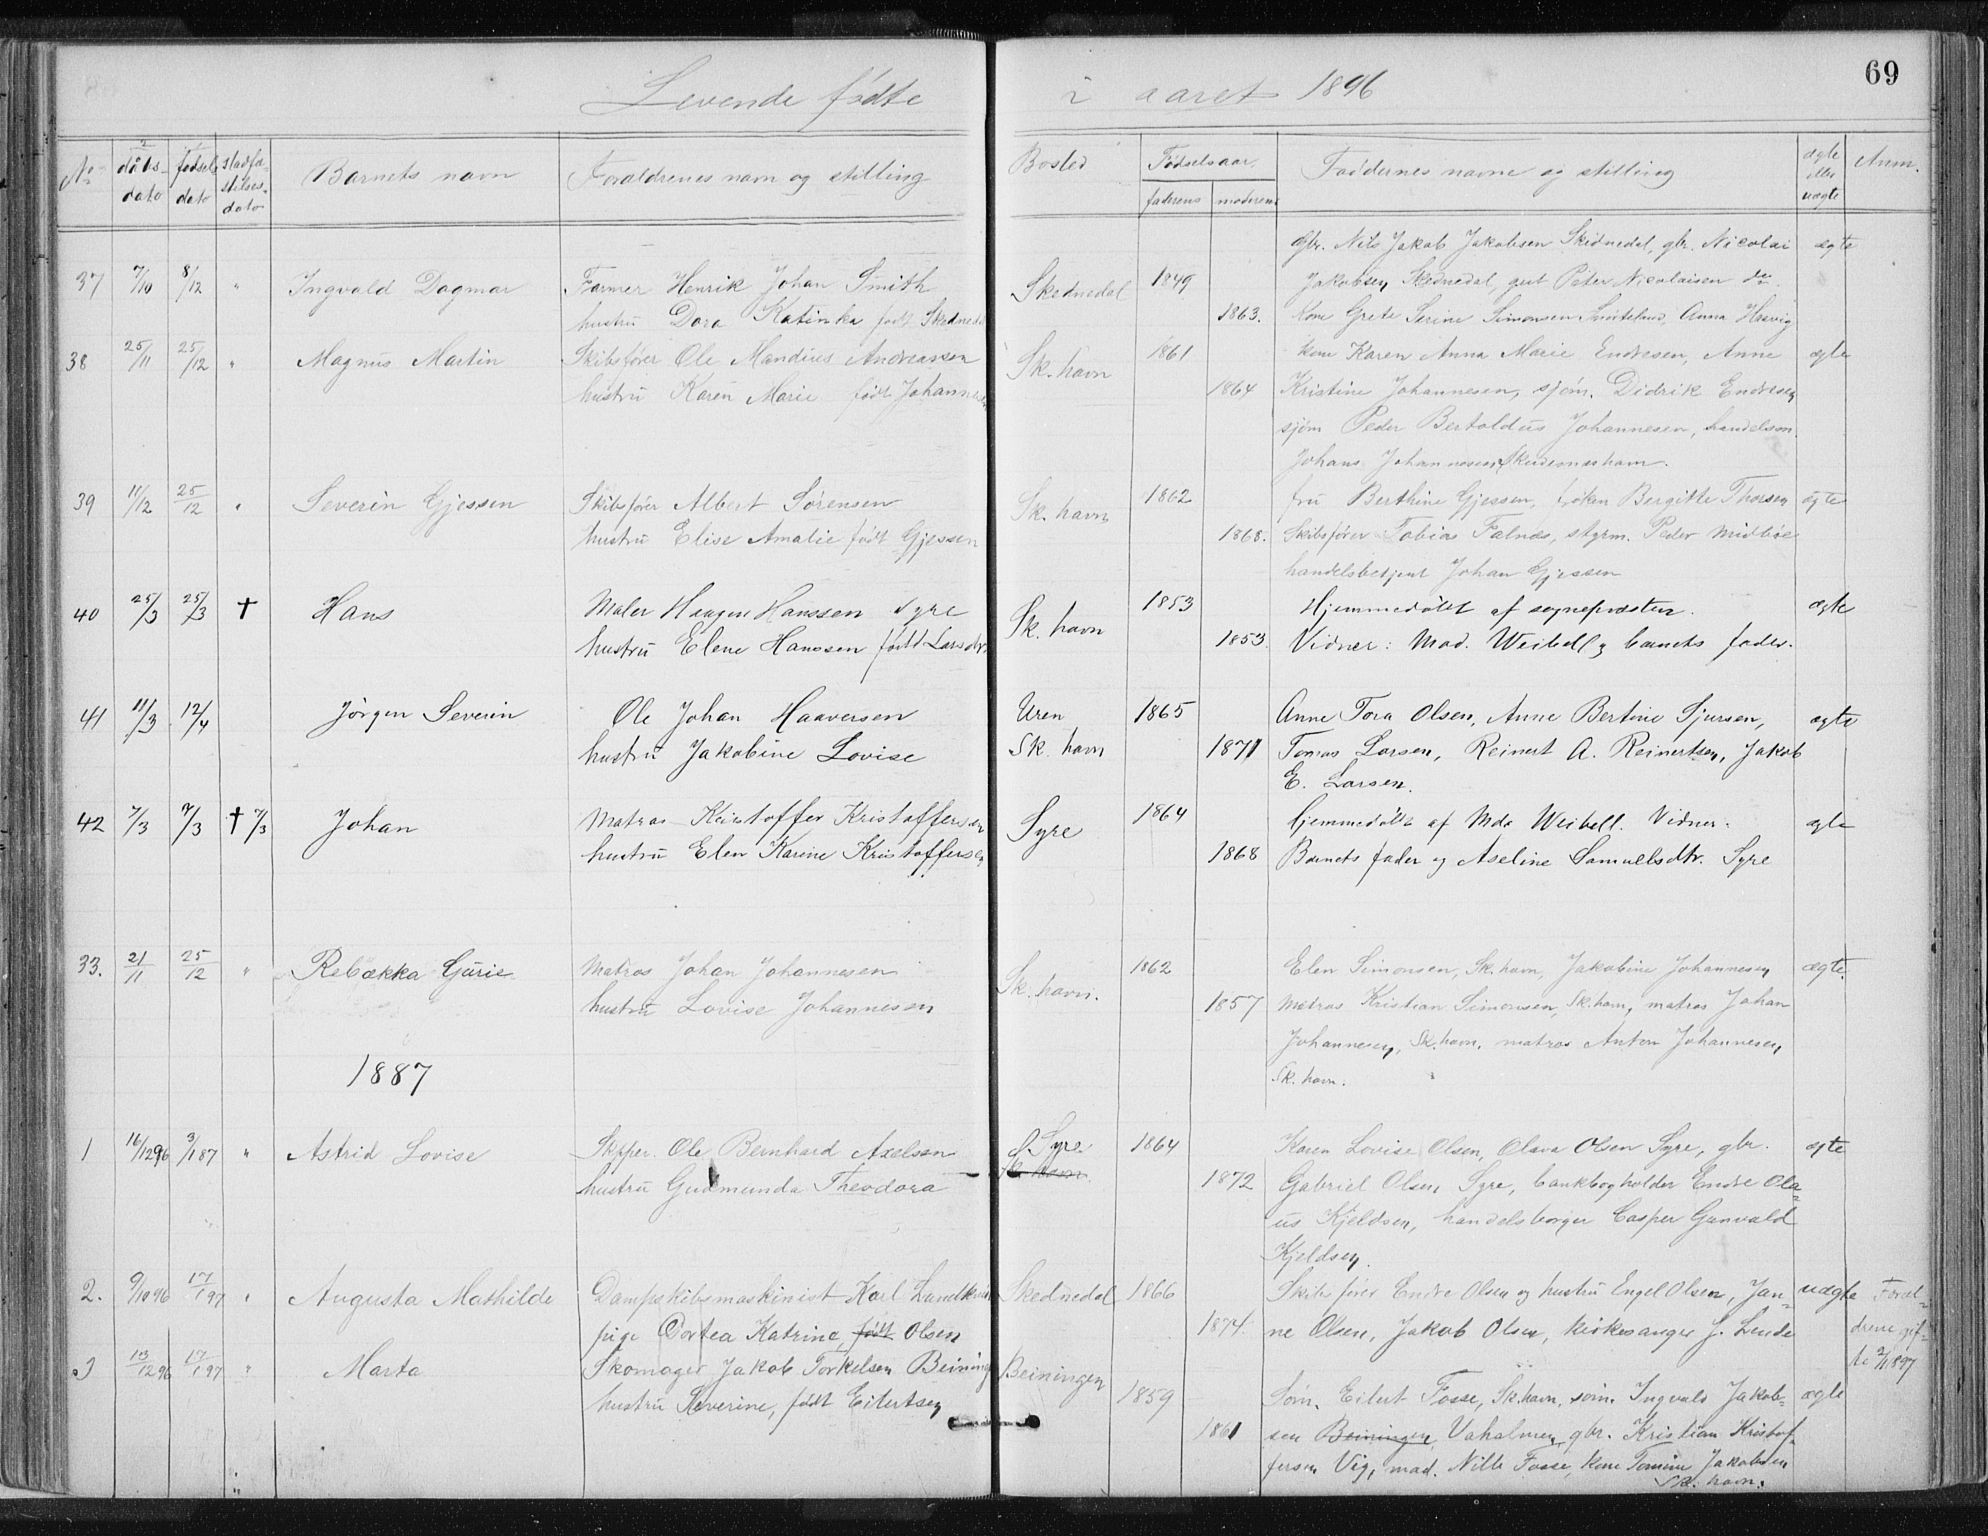 69
Levende fødte i aaret 1896
No dåbs dato fødsels dato stadfæstelses dato Barnets navn Forældrenes navn og stilling Bosted Fødselsaar faderens moderens Faddernes navne og stilling ægte eller uægte Anm.
gbr. Nils Jakob Jakobsen Skednedal, gbr. Nicolai ægte
37 7/10 8/12 " Ingvald Dagmar Farmer Henrik Johan Smith Skednedal 1849 Jakobsen Skednedal, gut Peter Nicolaisen do.
hustru Dora Katinka født Skednedal 1863. Kone Grete Serine Simonsen Anna
38 25/11 25/12 " Magnus Martin Skibsfører Ole Mandius Andreassen Sk. havn 1861 kone Karen Anna Marie Endresen, Anne ægte
hustru Karen Marie født Johannesen 1864 Kristine Johannesen, sjøm. Didrik Endresen
sjøm Peder Bertoldus Johannesen, handelsm.
Johans Johannesen
39 11/12 25/12 " Severin Gjessen Skibsfører Albert Sørensen Sk. havn 1862 fru Berthine Gjessen, frøken Bergitte Thorsen ægte
hustru Elise Amalie født Gjessen 1868. Skibsfører Tobias Falnæs, styrm. Peder Midbøe
handelsbetjent Johan Gjessen
40 25/3 25/3 † Hans Maler Haagen Hanssen Syre Sk. havn 1853 Hjemmedøbt af sognepræsten. ægte
hustru Elene Hanssen født Larsdtr. 1853. Vidner: Mad. Weibell og barnets fader.
41 11/3 12/4 Jørgen Severin Ole Johan Haaversen Uren 1865 Anne Tora Olsen, Anne Bertine Sjursen, ægte
hustru Jakobine Lovise Sk. havn 1871 Tomas Larsen, Reinert A. Reinertsen, Jakob
E. Larsen.
42 7/3 7/3 † 7/3 Johan Matros Kristoffer Kristoffersen Syre 1864 hjemmedøbt af Mda Weibell. Vidner: ægte
hustru Elen Karine Kristoffersen 1868 Barnets fader og Aseline Samuelsdtr. Syre
33. 21/11 25/12 " Rebækka Gurie Matros Johan Johannesen Sk. havn. 1862 Elen Simonsen, Sk. havn, Jakobine Johannesen ægte.
hustru Lovise Johannesen 1857 Matros Kristian Simonsen, Sk. havn, matros Johan
Johannesen, Sk. havn, matros Anton Johannesen,
Sk. havn.
1887
1 16/1296 3/187 " Astrid Lovise Skpper. Ole Bernhard Axelsen Syre 1864 Karen Lovise Olsen, Olava Olsen Syre, gbr. ægte
hustru Gudmunda Theodora Sk. havn. 1872 Gabriel Olsen, Syre, bankbogholder Endre Ola-
us Kjeldsen, handelsborger Casper Gunvald
Kjeldsen.
2. 9/1096 17/197 " Augusta Mathilde Dampskibsmaskinist Karl Skednedal 1866 Skibsfører Endre Olsen og hustru Engel Olsen, Jan- uægte Foræl-
pige Dortea Katrine, født Olsen 1874. ne Olsen, Jakob Olsen, kirkesanger J. Lende drene gif-
3 13/1296 17/197 " Marta Skomager Jakob Torkelsen Beiningen Beiningen te 2/1 1897
1859 Søm. Eilert Fosse, Sk. havn, søm. Ingvald Jakob- ægte
hustru Severine, født Eilertsen
1861 sen Beiningen Vaholmen, gbr. Kristian Kristof-
fersen Vig, mad. Nille Fosse, kone Tomine Jakobsen
Sk. havn.